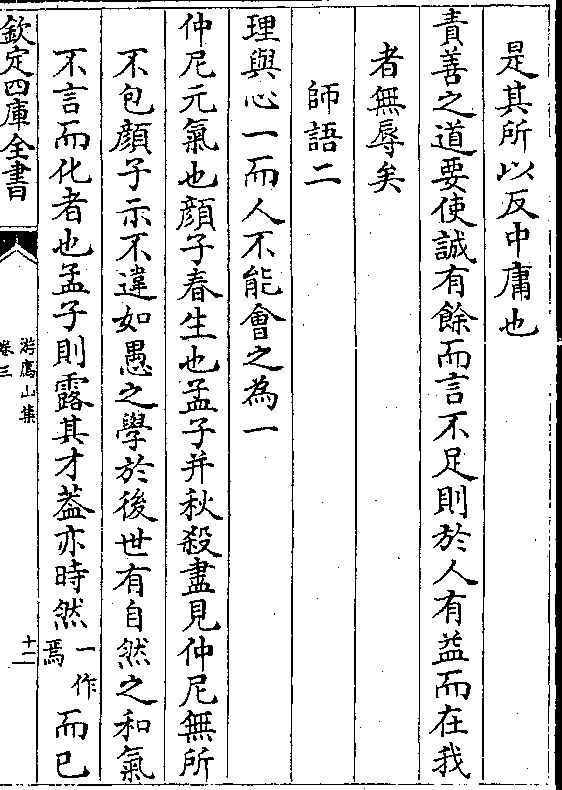 是其所以反中庸也
責善之道要使誠有餘而言不足則於人有益而在我
者無辱矣
師語二
理與心一而人不能會之為一
仲尼元氣也顔子春生也孟子并秋殺盡見仲尼無所
不包顔子示不違如愚之學於後世有自然之和氣
不言而化者也孟子則露其才葢亦時然一作焉而已
欽定四庫全書
游廌山集
卷三
十二